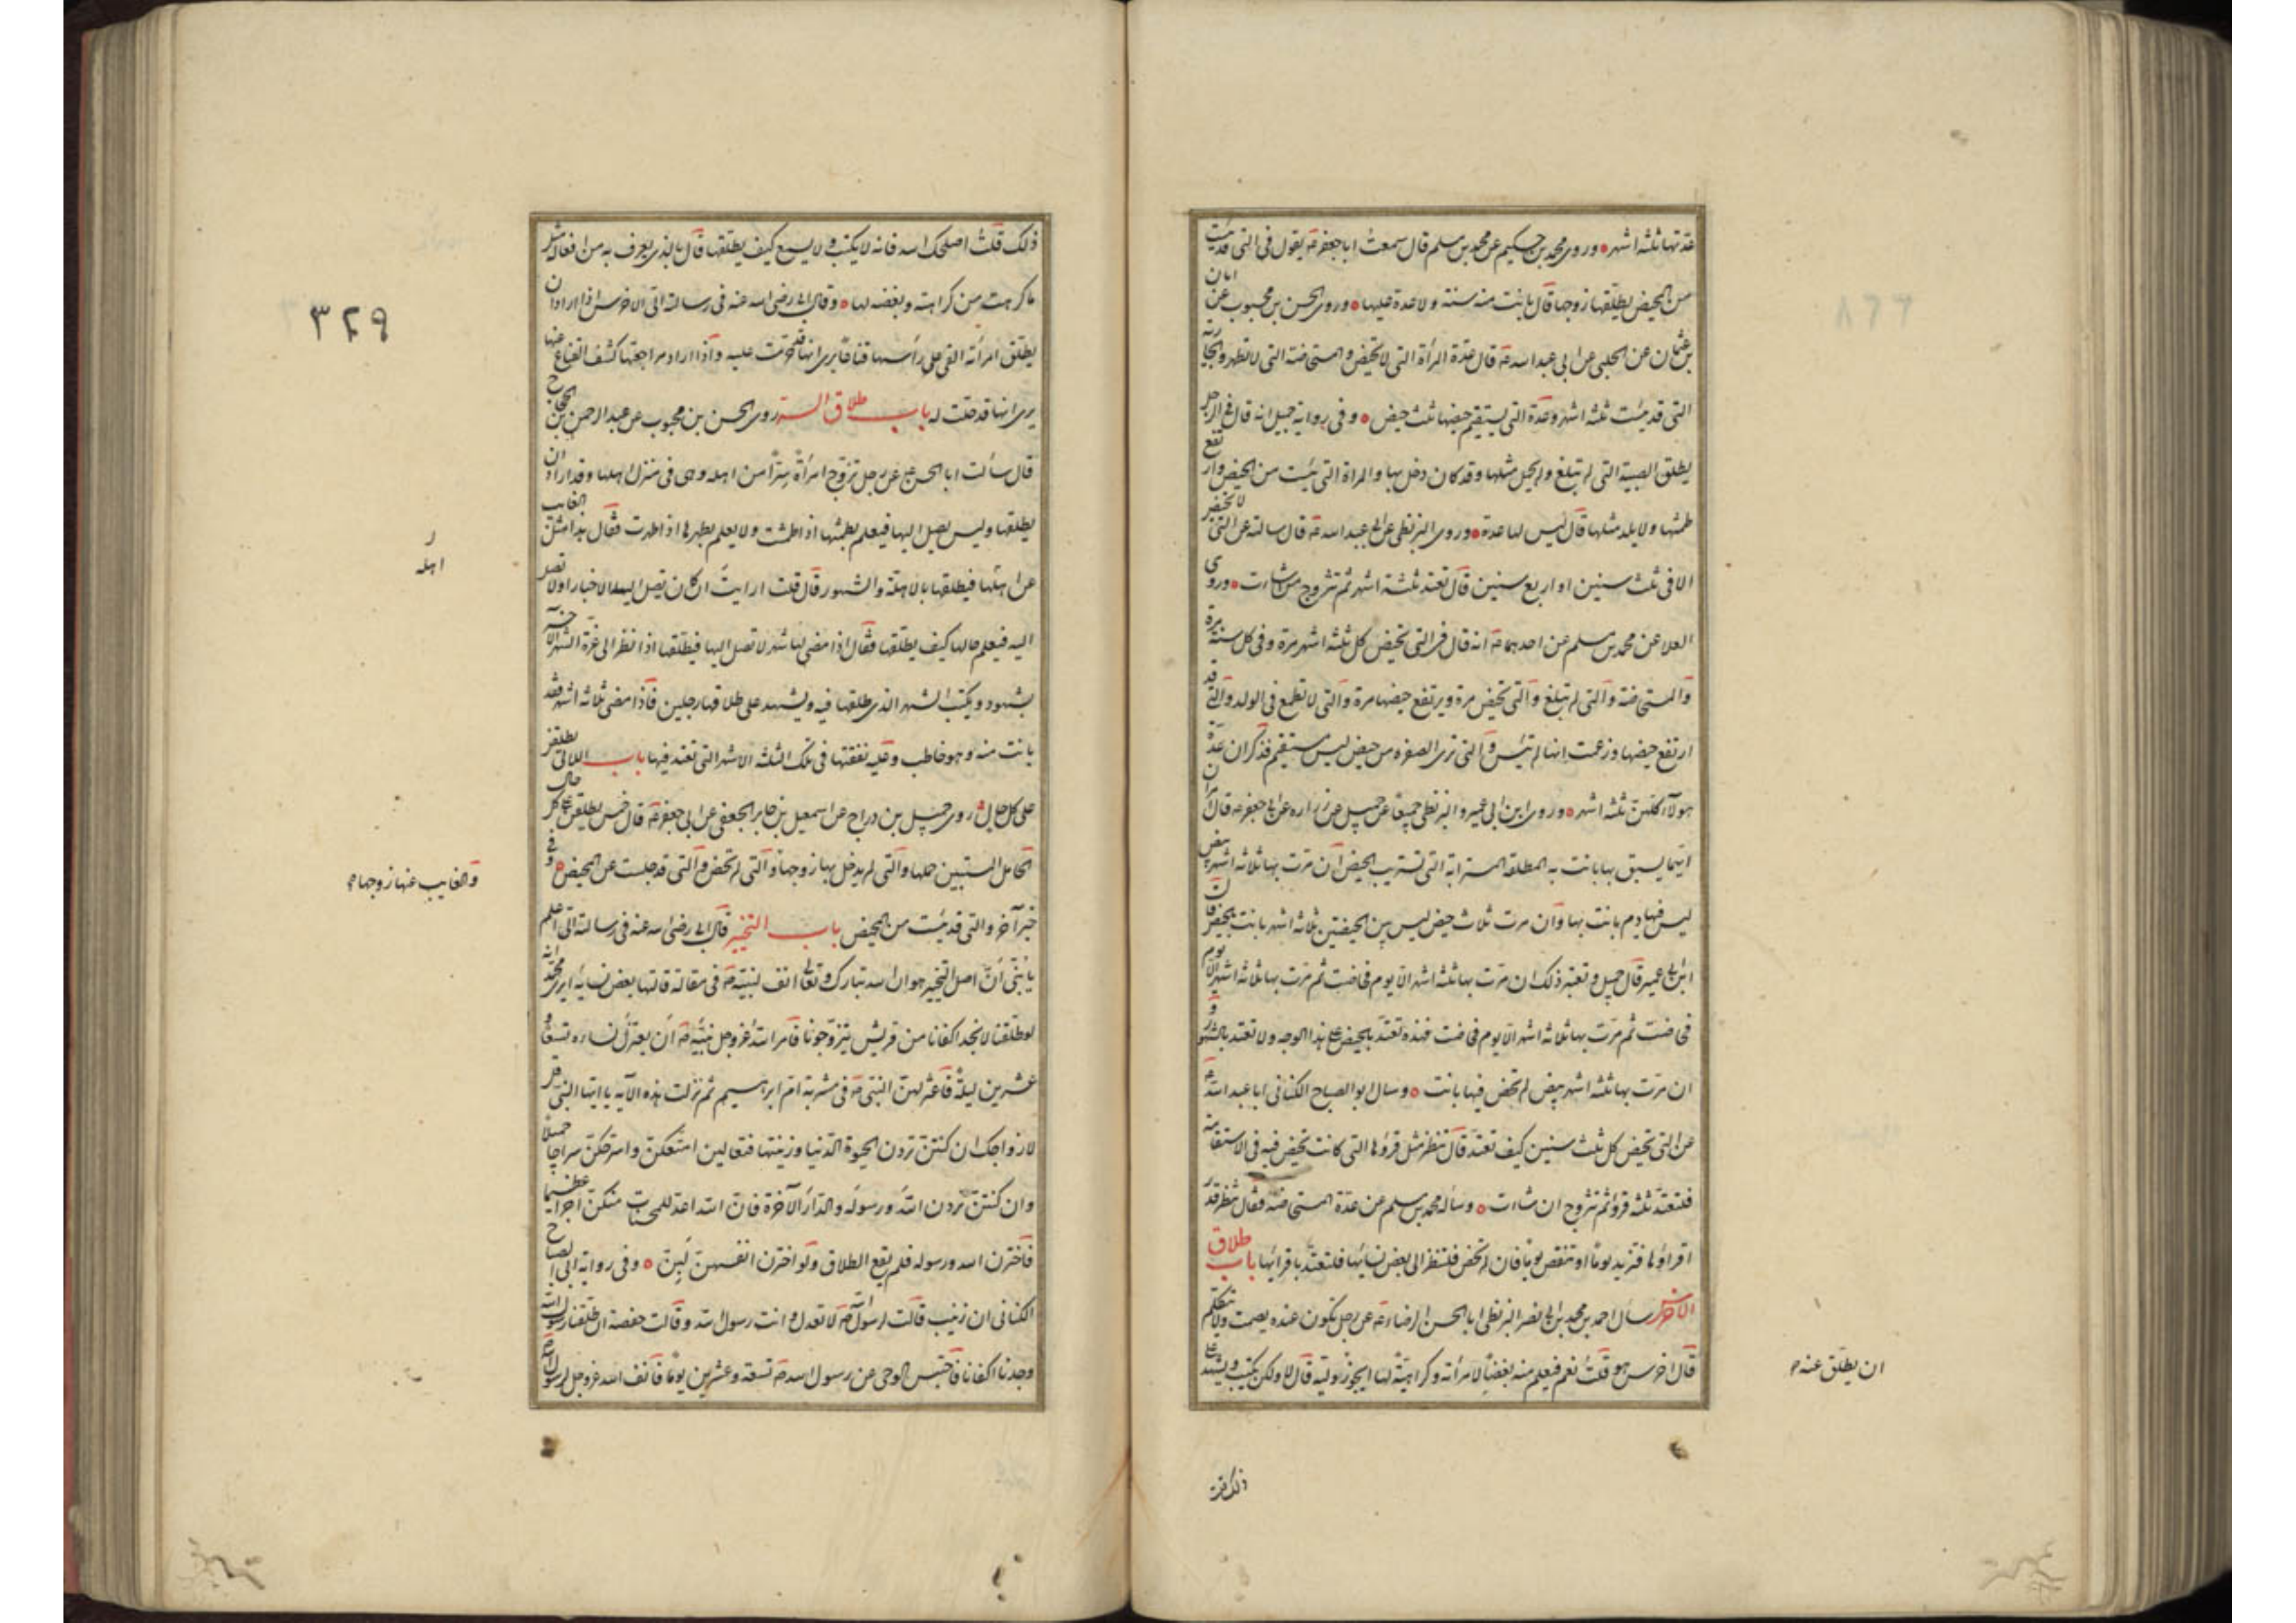 عدتها ثلثة اشهر وروى محمد بن حكيم عن محمد بن مسلم قال سمعت ابا جعفر ع يقول فى التى قد يئست
من المحيض يطلقها زوجها قال بانت منه ولا عدة عليها وروى الحسن بن محبوب عن ابان
بن عثمان عن الحلبى عن ابى عبد الله ع قال عدة المرأة التى لا تحيض والمستحاضة التى لا تطهر والجارية
التى قد يئست ثلثة اشهر وعدة التى يستقيم حيضها ثلث حيض وفى رواية جميل انه قال فى الرجل
يطلق الصبية التى لم تبلغ ولم يحمل مثلها وقد كان دخل بها والمراة التى يئست من المحيض وارتفع
طمثها ولا يلد مثلها قال ليس لها عدة وروى البزنطى عن عبد الله ع قال سالته عن التى لا تحيض
الا فى ثلث سنين او اربع سنين قال تعتد ثلثة اشهر ثم تتزوج من شاءت وروى
العلا عن محمد بن مسلم عن احدهما ع انه قال فى التى تحيض كل ثلثة اشهر مرة وفى كل سنة مرة
والمستحاضة والتى لم تبلغ والتى تحيض مرة ويرتفع حيضها مرة والتى لا تطمع فى الولد والتى قد
ارتفع حيضها وزعمت انها لم تيئس والتى ترى الصفرة من حيض ليس بمستقيم فذكر ان عدة
هولاء كلهن ثلثة اشهر وروى ابن ابى عمير والبزنطى جميعا عن جميل عن زراره عن ابى جعفر ع قال امران
ايهما يسبق بها بانت به المطلقة المسترابة التى تستريب الحيض ان مرت بها ثلاثة اشهر بيض
ليس فيها دم بانت بها وان مرت ثلاث حيض ليس بين الحيضتين ثلاثة اشهر بانت بالحيض قال
ابن ابى عمير قال جميل وتفسير ذلك ان مرت بها ثلثة اشهر الا يوم فحاضت ثم مرت بها ثلاثة اشهر الا يوم
فحاضت ثم مرت بها ثلاثة اشهر الا يوم فحاضت فهذه تعتد بالحيض على هذا الوجه ولا تعتد بالشهور و
ان مرت بها ثلثة اشهر بيض لم تحض فيها بانت وسال ابو الصباح الكنانى ابا عبد الله ع
عن التى تحيض كل ثلث سنين كيف تعتد قال تنظر مثل قروءها التى كانت تحيض فيه فى الاستقامة
فلتعتد ثلثة قروء ثم تتزوج ان شاءت وساله محمد بن مسلم عن عدة المستحاضة فقال تنتظر قدر
اقراؤها فتزيد يوما او تنقص يوما فان لم تحض فلتنظر الى بعض نسائها فلتعتد باقرائها باب طلاق
الاخرس سال احمد بن محمد بن ابى نصر البزنطى ابا الحسن الرضا ع عن رجل تكون عنده يصمت ولا يتكلم
قال اخرس هو قلت نعم فيعلم منه بغضا لامرأته وكراهية لها ايجوز وليه قال لا ولكن يكتب ويشهد على
ان يطلق عنه
ذلك قلت
ذلك قلت اصلحك الله فانه لا يكتب ولا يسمع كيف يطلقها قال بالذى يعرف به من افعاله مثل
ما كرهت من كراهته وبغضه لها وقال ابى رضى الله عنه فى رسالته الى الاخرس اذا اراد ان
يطلق امرأته القى على رأسها قناعا يرى انها قد حرمت عليه واذا اراد مراجعتها كشف القناع عنها
يرى انها قد حلت له باب طلاق السر روى الحسن بن محبوب عن عبد الرحمن بن الحجاج
قال سألت ابا الحسن ع عن رجل تزوج امرأة سرا من اهله وهى فى منزل اهلها وقد اراد ان
يطلقها وليس يصل اليها فيعلم بطمثها اذا طمثت ولا يعلم بطهرها اذا طهرت فقال هذا مثل الغايب
عن اهلها فيطلقها بالاهلة والشهور قال قلت ارايت ان كان تصل اليه الاخبار اولا تصل
اليه فيعلم حالها كيف يطلقها فقال اذا مضى لها شهر لا تصل اليها فيطلقها اذا نظر الى غرة الشهر الاخر
بشهود ويكتب الشهر الذى طلقها فيه ويشهد على طلاقها رجلين فاذا مضى ثلاثة اشهر فقد
بانت منه وهو خاطب وعليه نفقتها فى تلك الثلثة الاشهر التى تعتد فيها باب اللاتى يطلقن
على كل حال روى جميل بن دراج عن اسمعيل بن جابر الجعفى عن ابى جعفر ع قال خمس يطلقن على كل حال
الحامل المستبين حملها والتى لم يدخل بها زوجها والتى لم تحض والتى قد جلست عن المحيض وفى
خبر آخر والتى قد يئست من المحيض باب التخيير قال ابى رضى الله عنه فى رسالته الى اعلم
يا بنى ان اصل التخيير هو ان الله تبارك وتعالى انف لنبيه ص فى مقالة قالتها بعض نسايه ايرى محمد انه
لو طلقنا لا نجد اكفانا من قريش يتزوجونا فامر الله عز وجل نبيه ص ان يعتزل نساءه تسعا و
عشرين ليلة فاعتزلهن النبى ص فى مشربة ام ابراهيم ثم نزلت هذه الآيه يا ايها النبى قل
لازواجك ان كنتن تردن الحيوة الدنيا وزينتها فتعالين امتعكن واسرحكن سراحا جميلا
وان كنتن تردن الله ورسوله والدار الآخرة فان الله اعد للمحسنات منكن اجرا عظيما
فاخترن الله ورسوله فلم يقع الطلاق ولو اخترن انفسهن لبن وفى رواية ابى الصباح
الكنانى ان زينب قالت لرسول الله ص لا تعدل وانت رسول الله وقالت حفصة ان طلقنا رسول الله
وجدنا اكفانا فاحتبس الوحى عن رسول الله ص تسعة وعشرين يوما فانف الله عز وجل لرسوله
٣٢٩
اهله
والغايب عنها زوجها